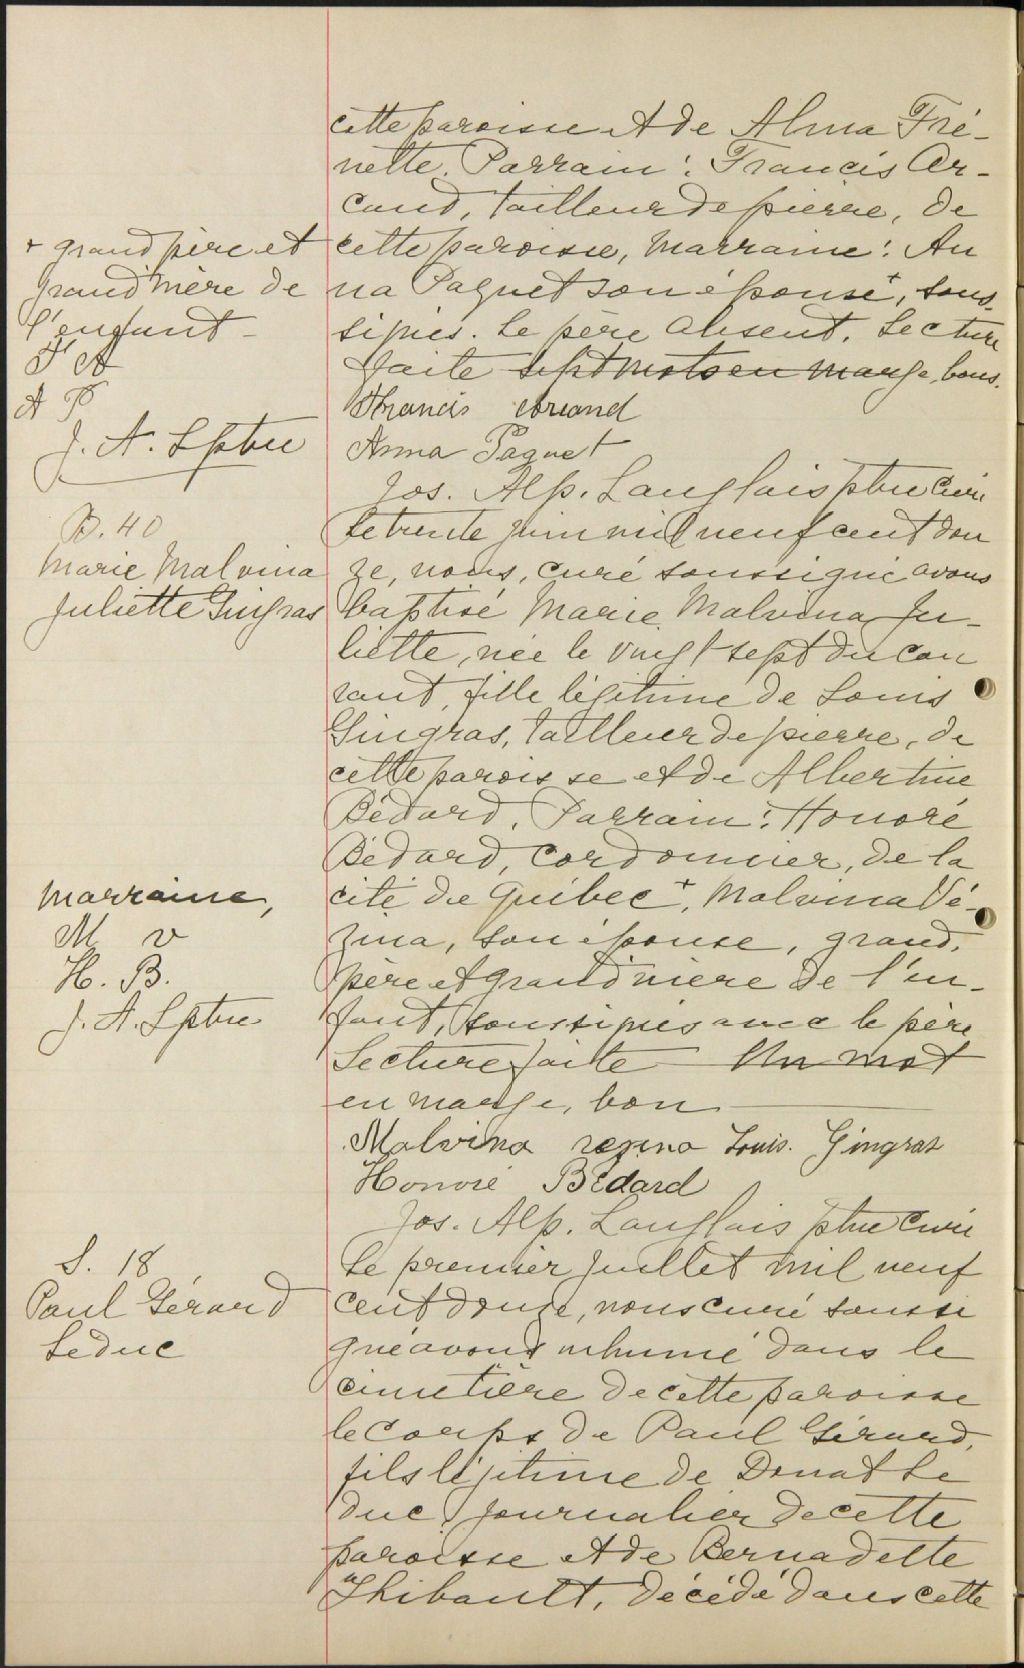 cette paroisse et de Alma Fré-
nette. Parrain : Francis Ar-
cand, tailleur de pierre, de
cette paroisse, Marraine : An
na Paquet son épouse +, sous-
signés. Le père absent. Lecture
faite sept mots en marge, bons.
Francis Arcand
Anna Paquet
Jos. Alp. Langlais ptre Curé
+ grand père et
grand'mère de
l'enfant -
F A
A P
J. A. L ptre
B. 40
Marie Malvina
Juliette Gingras
Le trente juin mil neuf cent dou
ze, nous, curé soussigné avons
baptisé Marie Malvina Ju-
liette, née le vingt sept du cou
rant, fille légitime de Louis
Gingras, tailleur de pierre, de
cette paroisse et de Albertine
Bédard. Parrain : Honoré
Bédard, cordonnier, de la
cité de Québec +, Malvina Vé-
zina, son épouse, grand-
père et grand'mère de l'en-
fant, soussignés avec le père
Lecture faite - Un mot
en marge, bon
Malvina vezina Louis. Gingras
Honoré Bédard
Jos. Alp. Langlais ptre Curé
Marraine,
M V
H. B.
J. A. L ptre
S. 18
Paul Gérard
Leduc
Le premier juillet mil neuf
cent douze, nous curé soussi
gné avons inhumé dans le
cimetière de cette paroisse
le corps de Paul Gérard,
fils légitime de Donat Le
duc, journalier de cette
paroisse et de Bernadette
Thibault, décédé dans cette